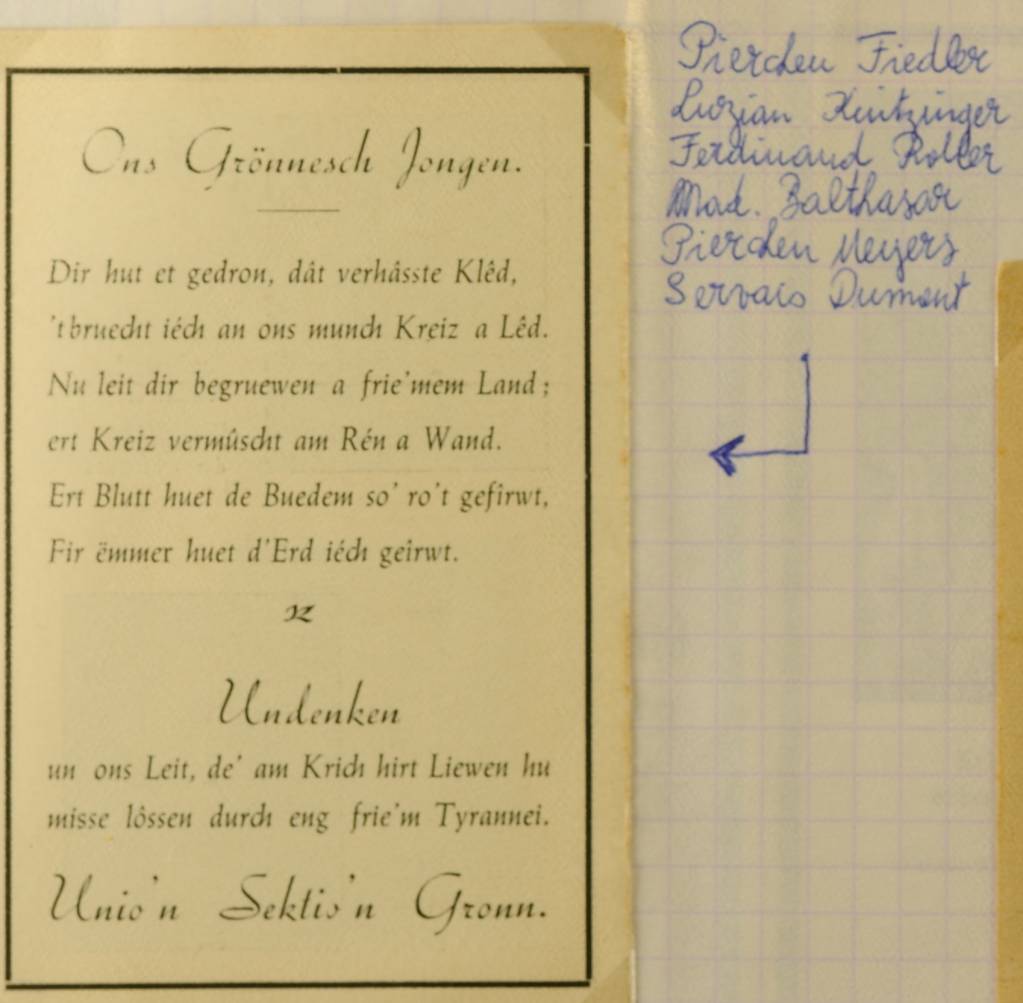 Ons Grönnesch Jongen.
Dir hut et gedron, dât verhâsste Klêd,
'tbruecht iéch an ons munch Kreiz a Lêd.
Nu leit dir begruewen a frie'mem Land;
ert Kreiz vermûscht am Rén a Wand.
Ert Blutt huet de Buedem so' ro't gefîrwt,
Fir ëmmer huet d'Erd iéch geîrwt.
Undenken
un ons Leit, de' am Krich hirt Liewen hu
misse lôssen durch eng frie'm Tyrannei.
Unio'n Sektio'n Gronn.
Pierchen Fiedler
Luzian Kintzinger
Ferdinand Roller
Mad. Balthasar
Pierchen Meyers
Servais Dumont